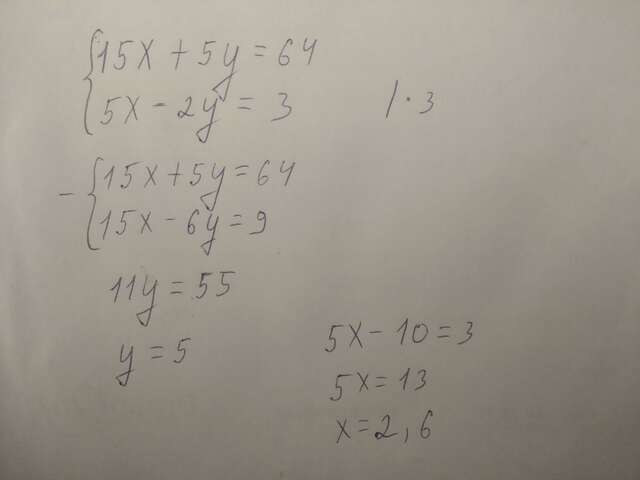 15x + 5y = 64
5x - 2y = 3 | · 3
- 15x + 5y = 64
15x - 6y = 9
11y = 55
y = 5
5x - 10 = 3
5x = 13
x = 2,6